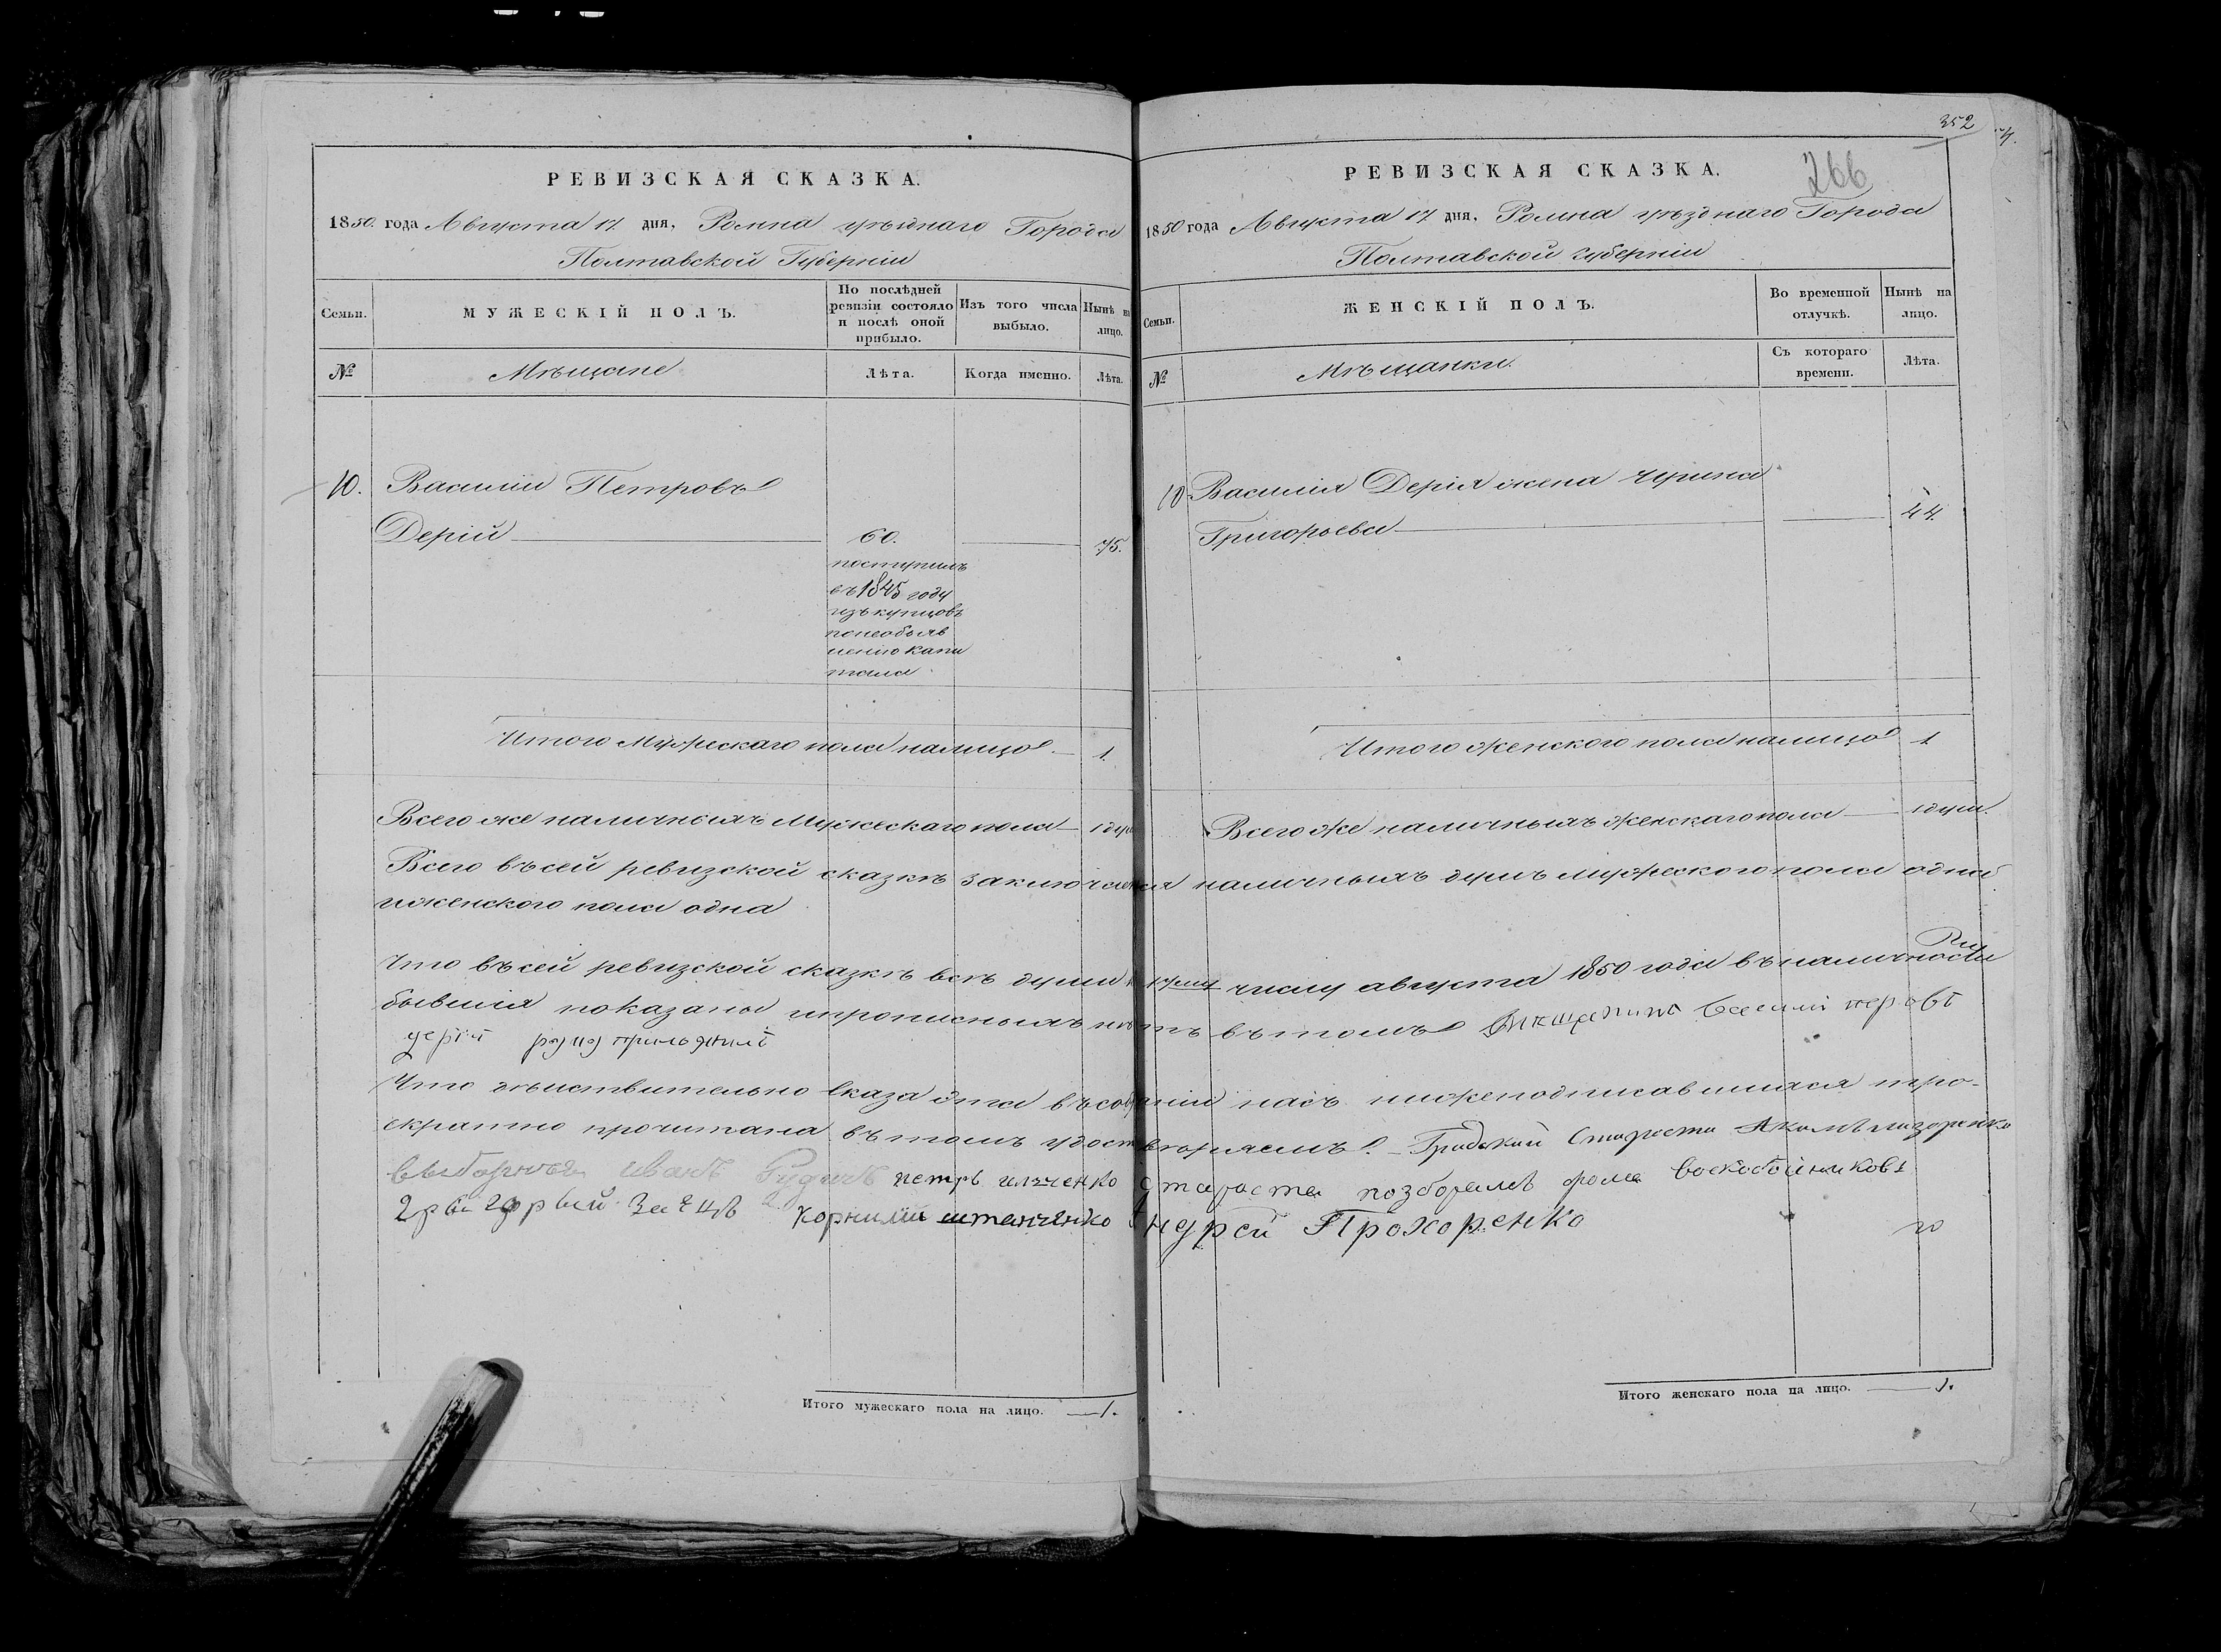 РЕВИЗСКАЯ СКАЗКА.
1850. года Августа 17 дня, Ромна уѣзднаго Города
Полтавской Губерніи
Семьи.
МУЖЕСКІЙ ПОЛЪ.
По послѣдней ревизіи состояло и послѣ оной прибыло.
Изъ того числа выбыло.
Нынѣ на лицо.
№
Мѣщане
Лѣта.
Когда именно.
Лѣта.
10. Василій Петровъ
Дерій 60. 75.
поступилъ
въ 1845 году
изъ купцовъ
по необъяв
ленію капи
тала
Итого Мужескаго пола налицо 1
Всего же наличныхъ Мужескаго пола 1 душ
352
266
РЕВИЗСКАЯ СКАЗКА.
1850 года Августа 17 дня, Ромна уѣзднаго Города
Полтавской губерніи
Семьи.
ЖЕНСКІЙ ПОЛЪ.
Во временной отлучкѣ.
Нынѣ на лицо.
№
Мѣщанки.
Съ котораго времени.
Лѣта.
10 Василія Дерія жена Ирина
Григорьева 44.
Итого женского пола налицо 1
Всего же наличныхъ женскаго пола 1 душ.
Всего въ сей ревизской сказкѣ заключается наличныхъ душъ мужеского пола одна
и женского пола одна
Что въ сей ревизской сказкѣ всѣ души к числу августа 1850 года въ наличности
бывшія показаны и прописныхъ нѣтъ въ томъ
дерій руку приложилъ
Что дѣйствительно сказа эта въ собраніи насъ нижеподписавшихся тро-
екратно прочитана въ томъ удостовѣряемъ. Градскій Староста
Иванъ петръ илченко староста фома воскобойниковъ
корнилій штанченко андрей Прохоренко
Итого мужескаго пола на лицо. 1.
Итого женскаго пола на лицо. 1.